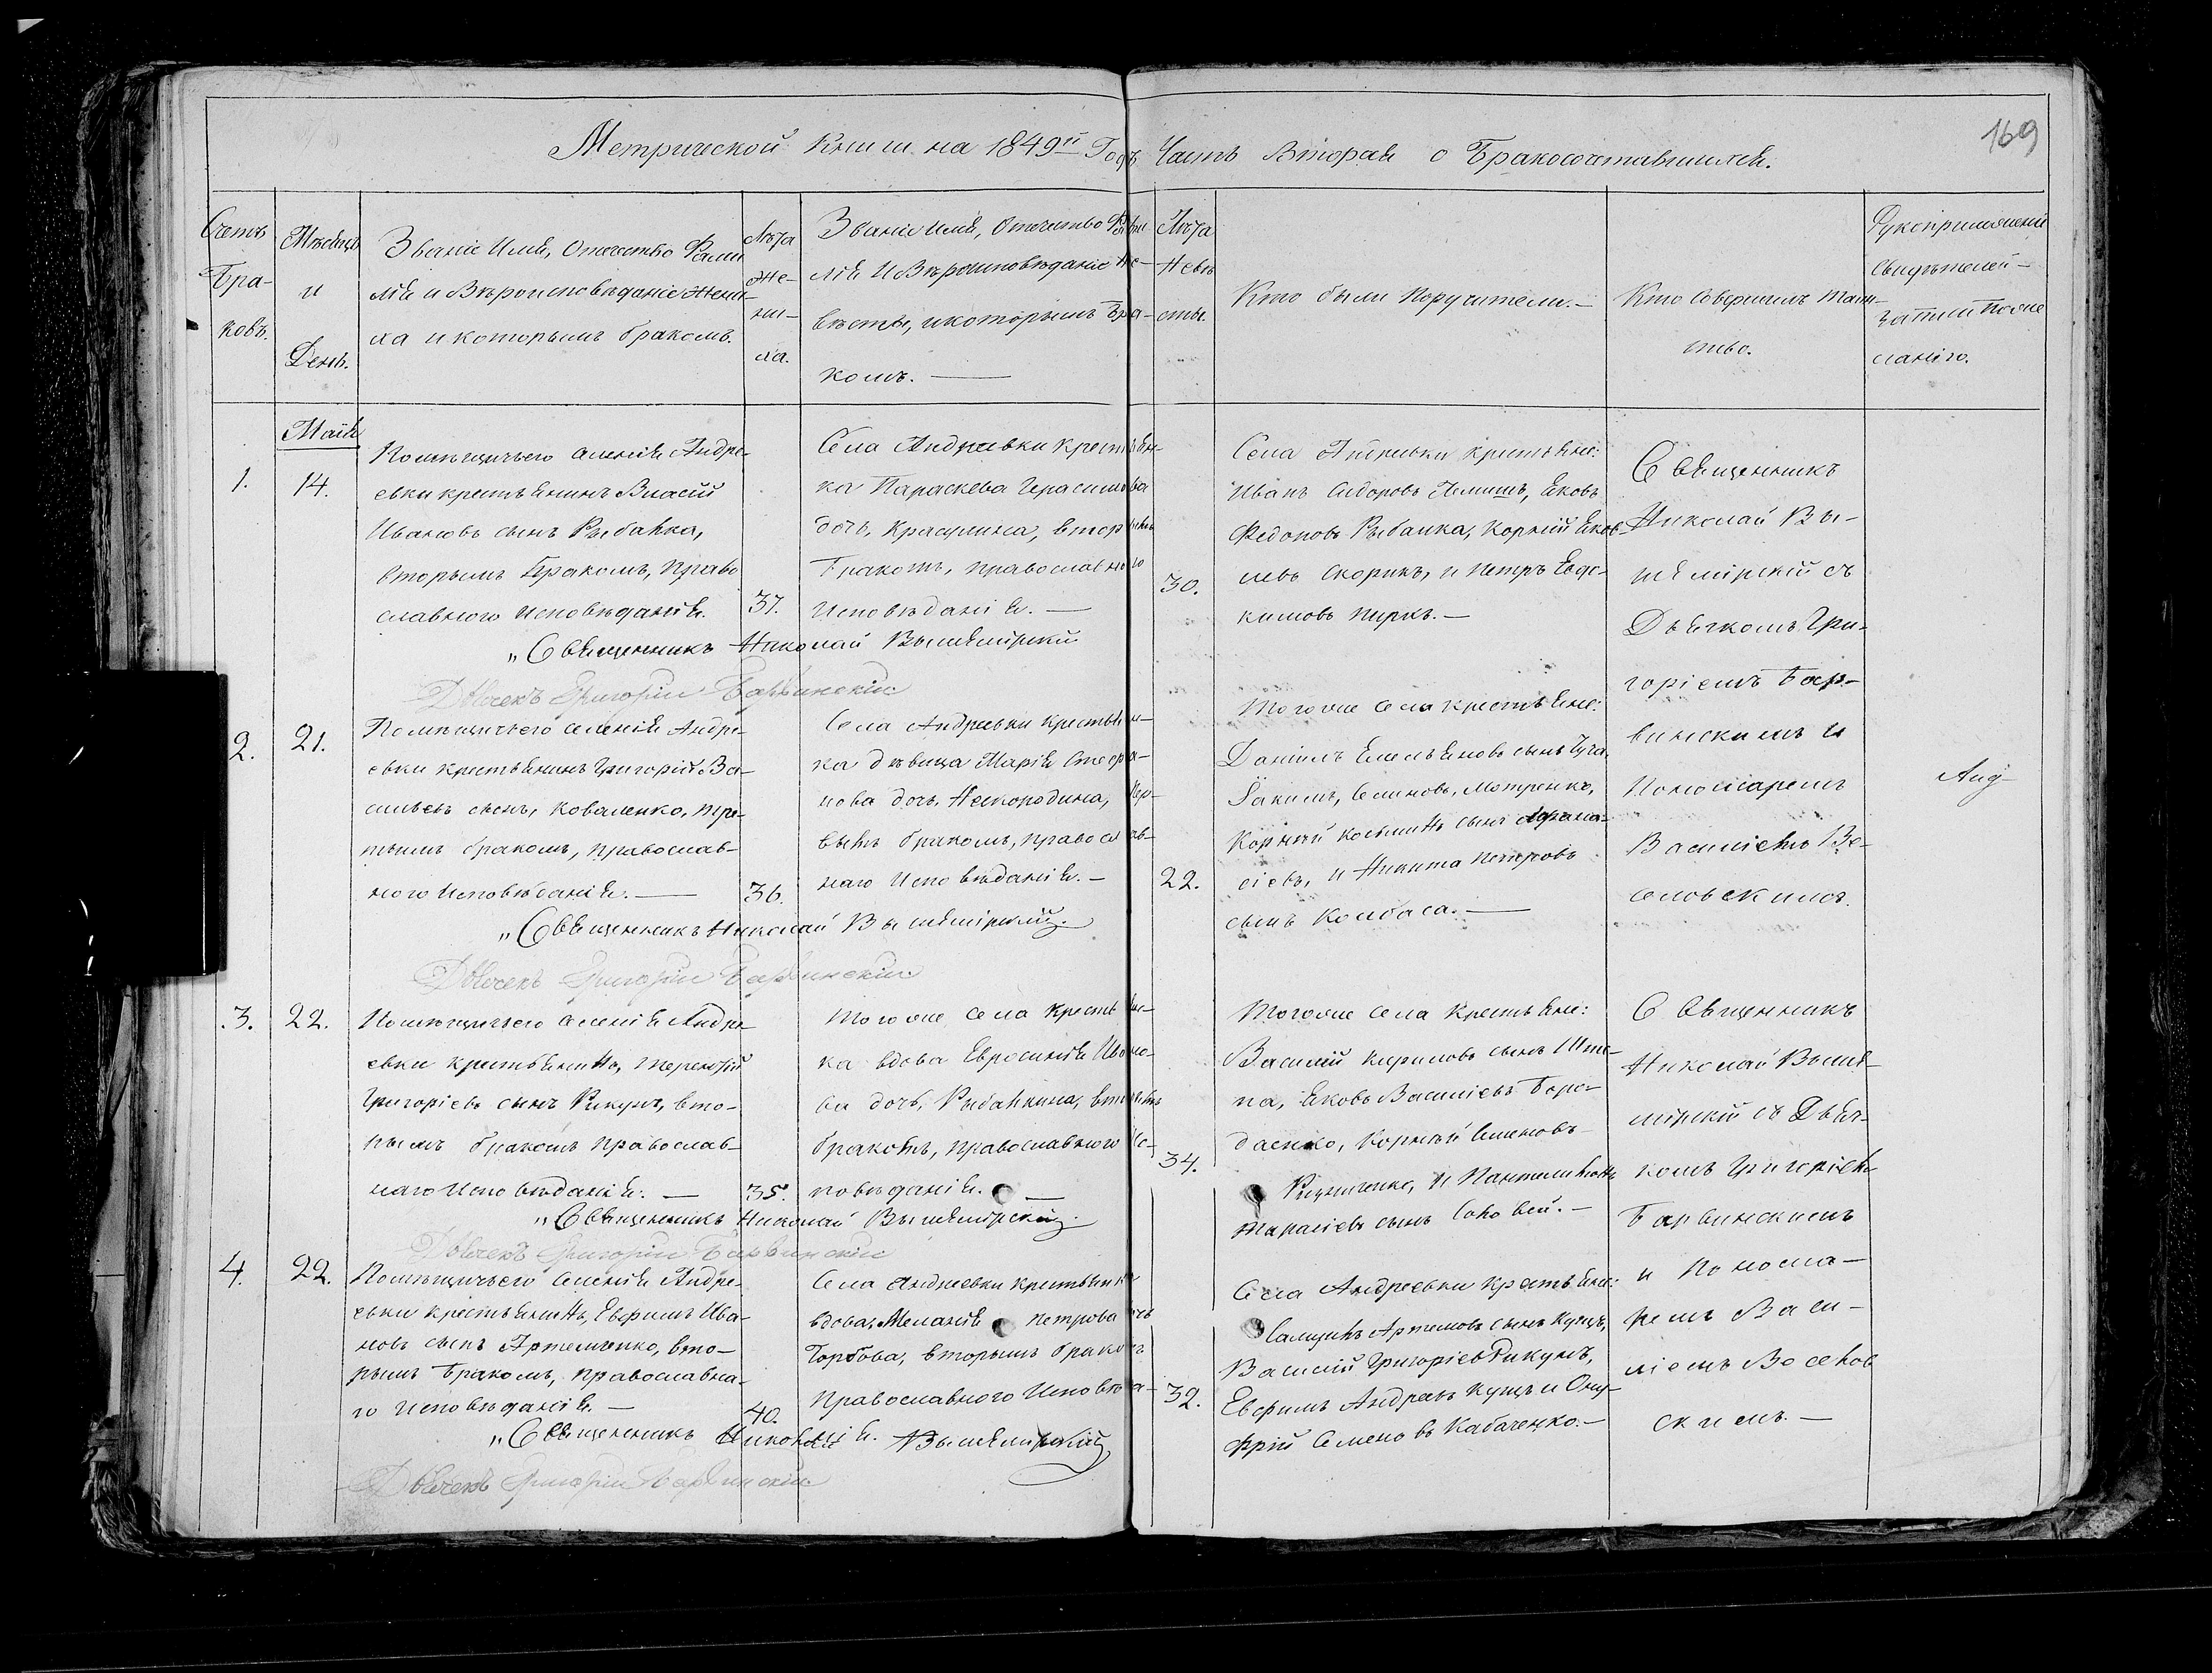 169
Метрической Книги на 1849й Годъ Часть Вторая о Бракосочетавшихся.
Счетъ
Бра-
ковъ.
Мѣсяцъ
и
День.
Званіе Имя, Отечество Фами
лія и Вѣроисповѣданіе Жени-
ха и которымъ бракомъ.
Лѣта
Же-
ни-
ха.
Званіе Имя, Отечество Фами
лія и Вѣроисповѣданіе Не-
вѣсты, и которымъ Бра-
комъ. —
Лѣта
Невѣ
сты.
Кто были Поручители. —
Кто Совершилъ Таин-
ство.
Рукоприложеніе
Свидѣтелей
записи по же
ланію.
Маія
1.
14.
Помѣщичьего селенія Андре-
евки крестьянинъ Власій
Ивановъ сынъ Рыбалка,
вторымъ Бракомъ, Право
славного Исповѣданія.
37.
Села Андреевки крестьян-
ка Параскева Герасимова
дочь, Красулина, вторымъ
Бракомъ, православного
Исповѣданія. —
30.
Села Андреевки крестьяне:
Иванъ Сидоровъ Яковъ
Федоровъ Рыбалка, Корній Яков-
левъ Скорикъ, и Петръ Евдо-
кимовъ Пиркъ. —
Священникъ
Николай Вы-
шемірскій съ
Дьячкомъ Гри-
горіемъ Бар-
винскимъ и
Пономаремъ
Василіемъ Ве-
селовскимъ.
„Священникъ Николай Вышемірскій
Дьячекъ Григорій Барвинскій
2.
21.
Помѣщичьего селенія Андре-
евки крестьянинъ Григорій Ва-
сильевъ сынъ, Коваленко, тре-
тьимъ бракомъ, православ-
ного Исповѣданія. —
36.
Села Андреевки крестьян-
ка дѣвица Марія
нова дочь, Нестородина, Пер-
вымъ бракомъ, православ-
наго Исповѣданія. —
22.
Того же села крестьяне:
Даніилъ Емельяновъ сынъ
Іакимъ, Семиновъ, Мотренко,
Корній Косьминъ сынъ Афана-
сіевъ, и Никита Петровъ
сынъ Колбаса. —
„Священникъ Николай Вышемірскій.
Дьячекъ Григорій Барвинскій
3.
22.
Помѣщичьего селенія Андре-
евки крестьянинъ, Терентій
Григоріевъ сынъ Рикунъ, вто-
рымъ бракомъ православ-
наго Исповѣданія. —
35.
Того же села крестьян-
ка вдова Евросинія Ивано-
ва дочь, Рыбалкина, вторымъ
бракомъ, православного Ис-
повѣданія. —
34.
Того же села крестьяне:
Василій Кириловъ сынъШте-
па, Яковъ Василіевъ Боро-
даенко, Корній Семеновъ
и Пантелимонъ
Тарасіевъ сынъ Соловей. —
Священникъ
Николай Выше-
мірскій съ Дьяч-
комъ Григоріемъ
Барвинскимъ
и Понома-
ремъ Васи-
ліемъ Веселов
скимъ. —
„Священникъ Николай Вышемірскій.
Дьячекъ Григорій Барвинскій
4.
22.
Помѣщичьего селенія Андре-
евки крестьянинъ, Евфимъ Ива-
новъ сынъ Артеменко, вто-
рымъ Бракомъ, православна-
го Исповѣданія. —
40.
Села Андреевки крестьянка
вдова, Меланія Петрова дочь
Горбова, вторымъ бракомъ
православного Исповѣда-
нія.
32.
Села Андреевки крестьяне:
Артемовъ сынъ Купцъ,
Василій Григоріевъ Рикунъ,
Евфимъ Андреевъ Купцъ и Ону-
фрій Семеновъ Кабаченко. —
„Священникъ Николай Вышемірскій
Дьячекъ Григорій Барвинскій